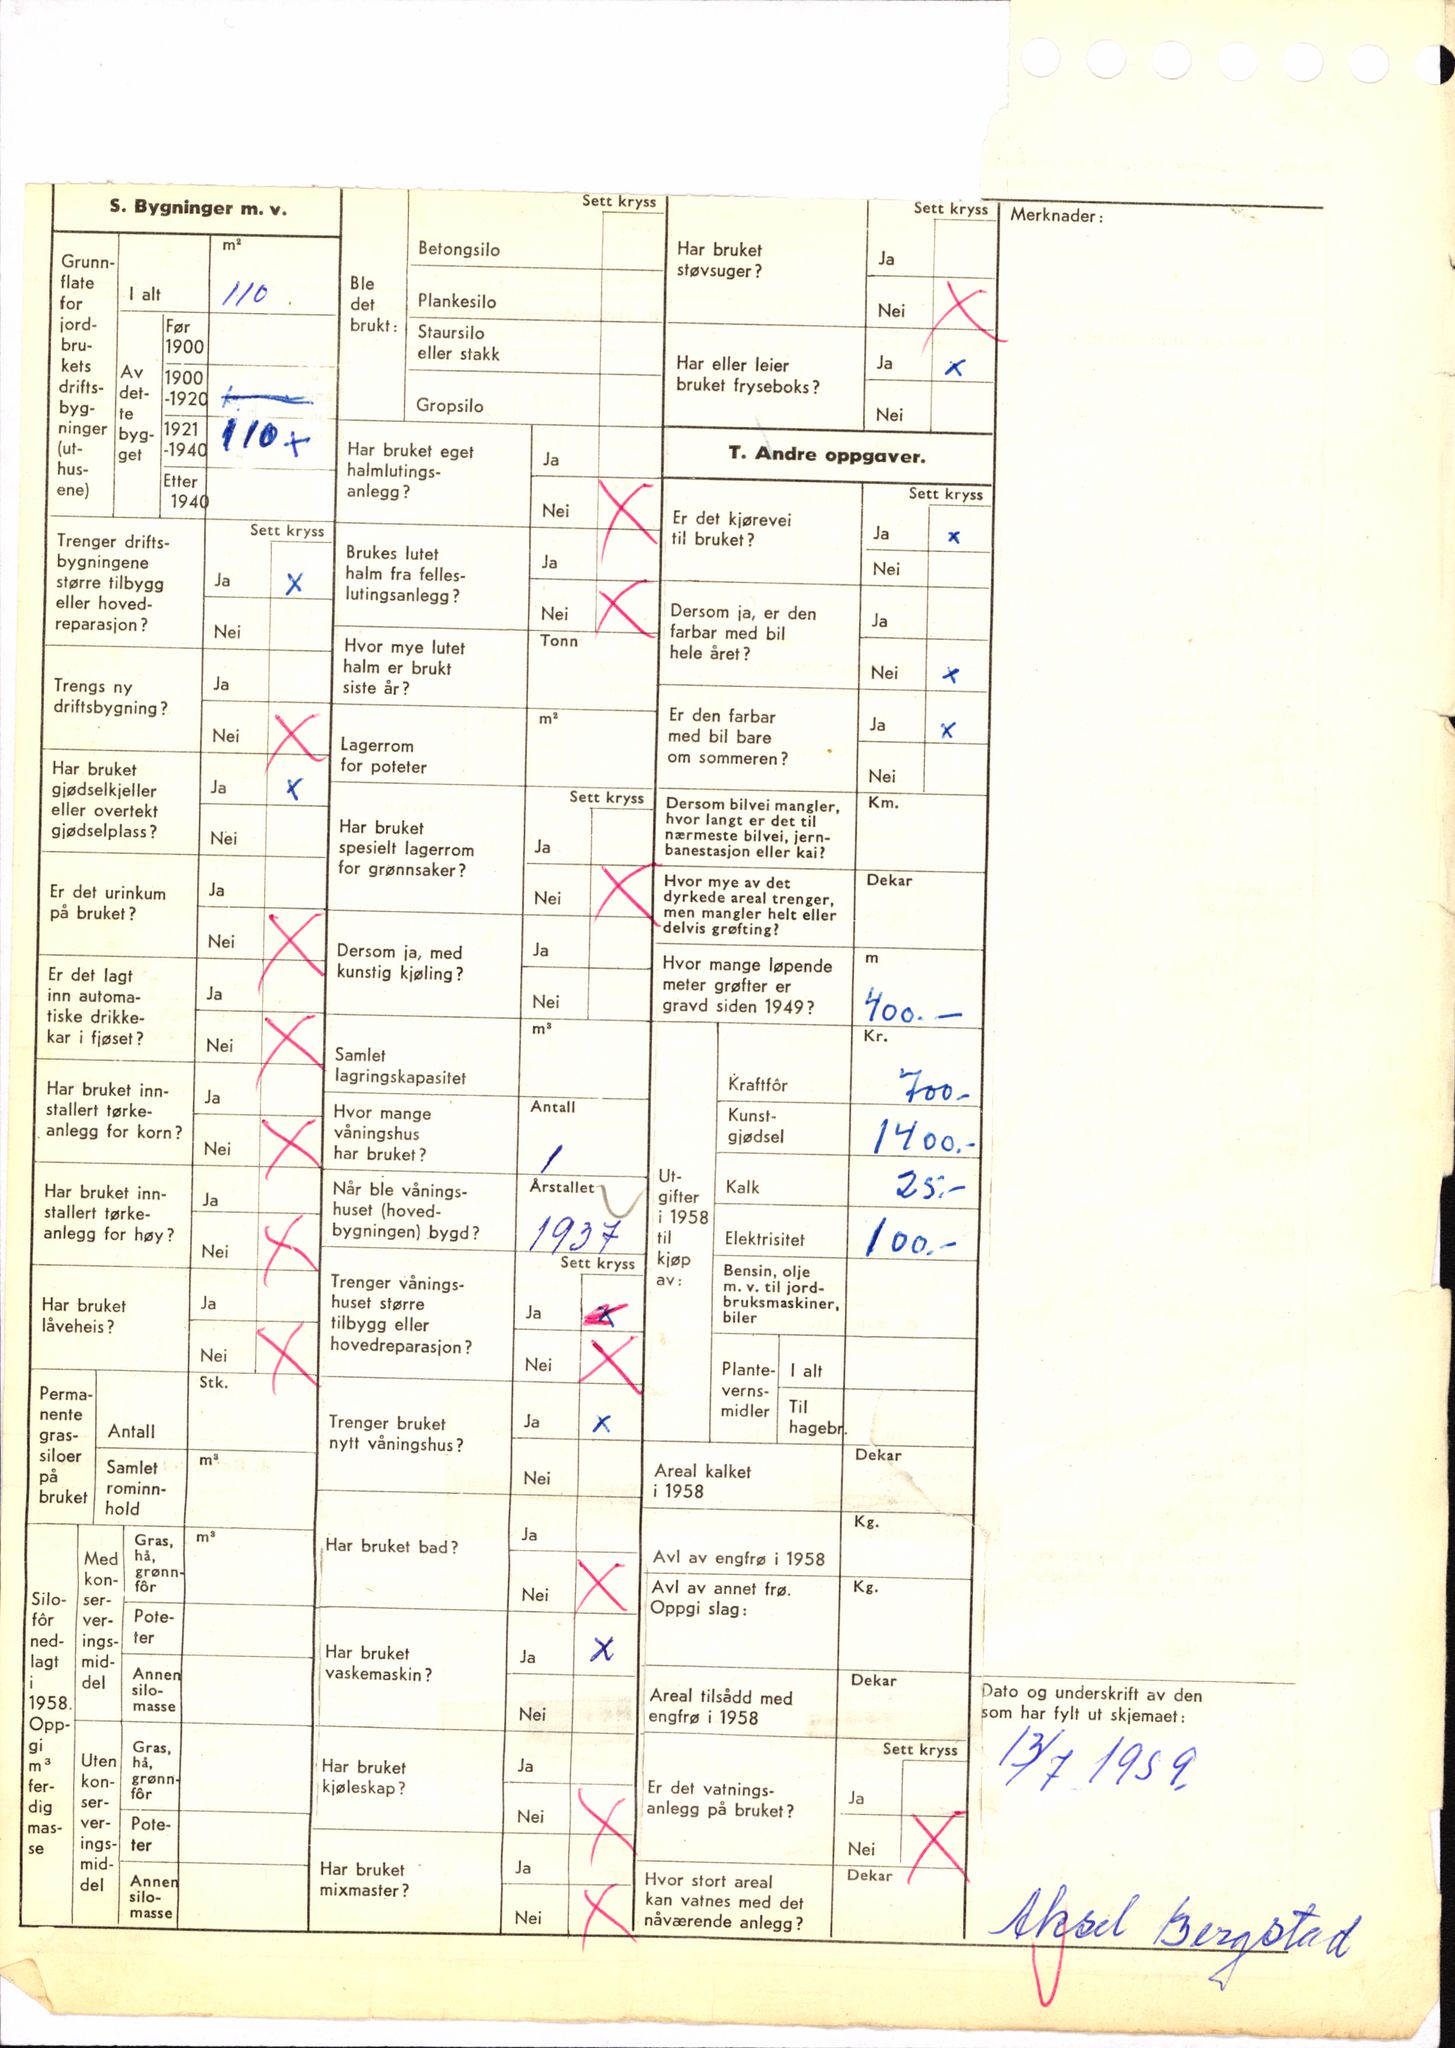 S. Bygninger m. v.
Grunn-
flate
for
jord-
bru-
kets
drifts-
byg-
ninger
(ut-
hus-
ene)
m²
I alt
110.
Av
det-
te
byg-
get
Før
1900
1900
-1920
1921
-1940
110 +
Etter
1940
Sett kryss
Trenger drifts-
bygningene
større tilbygg
eller hoved-
reparasjon?
Ja x
Nei
Trengs ny
driftsbygning?
Ja
Nei X
Har bruket
gjødselkjeller
eller overtekt
gjødselplass?
Ja x
Nei
Er det urinkum
på bruket?
Ja
Nei X
Er det lagt
inn automa-
tiske drikke-
kar i fjøset?
Ja
Nei X
Har bruket inn-
stallert tørke-
anlegg for korn?
Ja
Nei X
Har bruket inn-
stallert tørke-
anlegg for høy?
Ja
Nei X
Har bruket
låveheis?
Ja
Nei X
Perma-
nente
gras-
siloer
på
bruket
Stk.
Antall
Samlet
rominn-
hold
m³
Silo-
fôr
ned-
lagt
i
1958.
Opp-
gi
m³
fer-
dig
mas-
se
Med
kon-
ser-
ver-
ings-
mid-
del
Gras,
hå,
grønn-
fôr
m³
Pote-
ter
Annen
silo-
masse
Uten
kon-
ser-
ver-
ings-
mid-
del
Gras,
hå,
grønn-
fôr
Pote-
ter
Annen
silo-
masse
Ble
det
brukt:
Sett kryss
Betongsilo
Plankesilo
Staursilo
eller stakk
Gropsilo
Har bruket eget
halmlutings-
anlegg?
Ja
Nei X
Brukes lutet
halm fra felles-
lutingsanlegg?
Ja
Nei X
Hvor mye lutet
halm er brukt
siste år?
Tonn
Lagerrom
for poteter
m²
Sett kryss
Har bruket
spesielt lagerrom
for grønnsaker?
Ja
Nei X
Dersom ja, med
kunstig kjøling?
Ja
Nei
Samlet
lagringskapasitet
m³
Hvor mange
våningshus
har bruket?
Antall
1
Når ble vånings-
huset (hoved-
bygningen) bygd?
Årstallet
1937
Sett kryss
Trenger vånings-
huset større
tilbygg eller
hovedreparasjon?
Ja x
Nei X
Trenger bruket
nytt våningshus?
Ja x
Nei
Har bruket bad?
Ja
Nei X
Har bruket
vaskemaskin?
Ja x
Nei
Har bruket
kjøleskap?
Ja
Nei X
Har bruket
mixmaster?
Ja
Nei X
Sett kryss
Har bruket
støvsuger?
Ja
Nei X
Har eller leier
bruket fryseboks?
Ja x
Nei
T. Andre oppgaver.
Sett kryss
Er det kjørevei
til bruket?
Ja x
Nei
Dersom ja, er den
farbar med bil
hele året?
Ja
Nei x
Er den farbar
med bil bare
om sommeren?
Ja x
Nei
Dersom bilvei mangler,
hvor langt er det til
nærmeste bilvei, jern-
banestasjon eller kai?
Km.
Hvor mye av det
dyrkede areal trenger,
men mangler helt eller
delvis grøfting?
Dekar
Hvor mange løpende
meter grøfter er
gravd siden 1949?
m
400.—
Ut-
gifter
i 1958
til
kjøp
av:
Kr.
Kraftfôr 700.-
Kunst-
gjødsel 1400.-
Kalk 25.-
Elektrisitet 100.-
Bensin, olje
m. v. til jord-
bruksmaskiner,
biler
Plante-
verns-
midler
I alt
Til
hagebr.
Areal kalket
i 1958
Dekar
Avl av engfrø i 1958
Kg.
Avl av annet frø.
Oppgi slag:
Kg.
Areal tilsådd med
engfrø i 1958
Dekar
Sett kryss
Er det vatnings-
anlegg på bruket?
Ja
Nei X
Hvor stort areal
kan vatnes med det
nåværende anlegg?
Dekar
Merknader:
Dato og underskrift av den
som har fylt ut skjemaet:
13/7 1959.
Aksel Bergstad